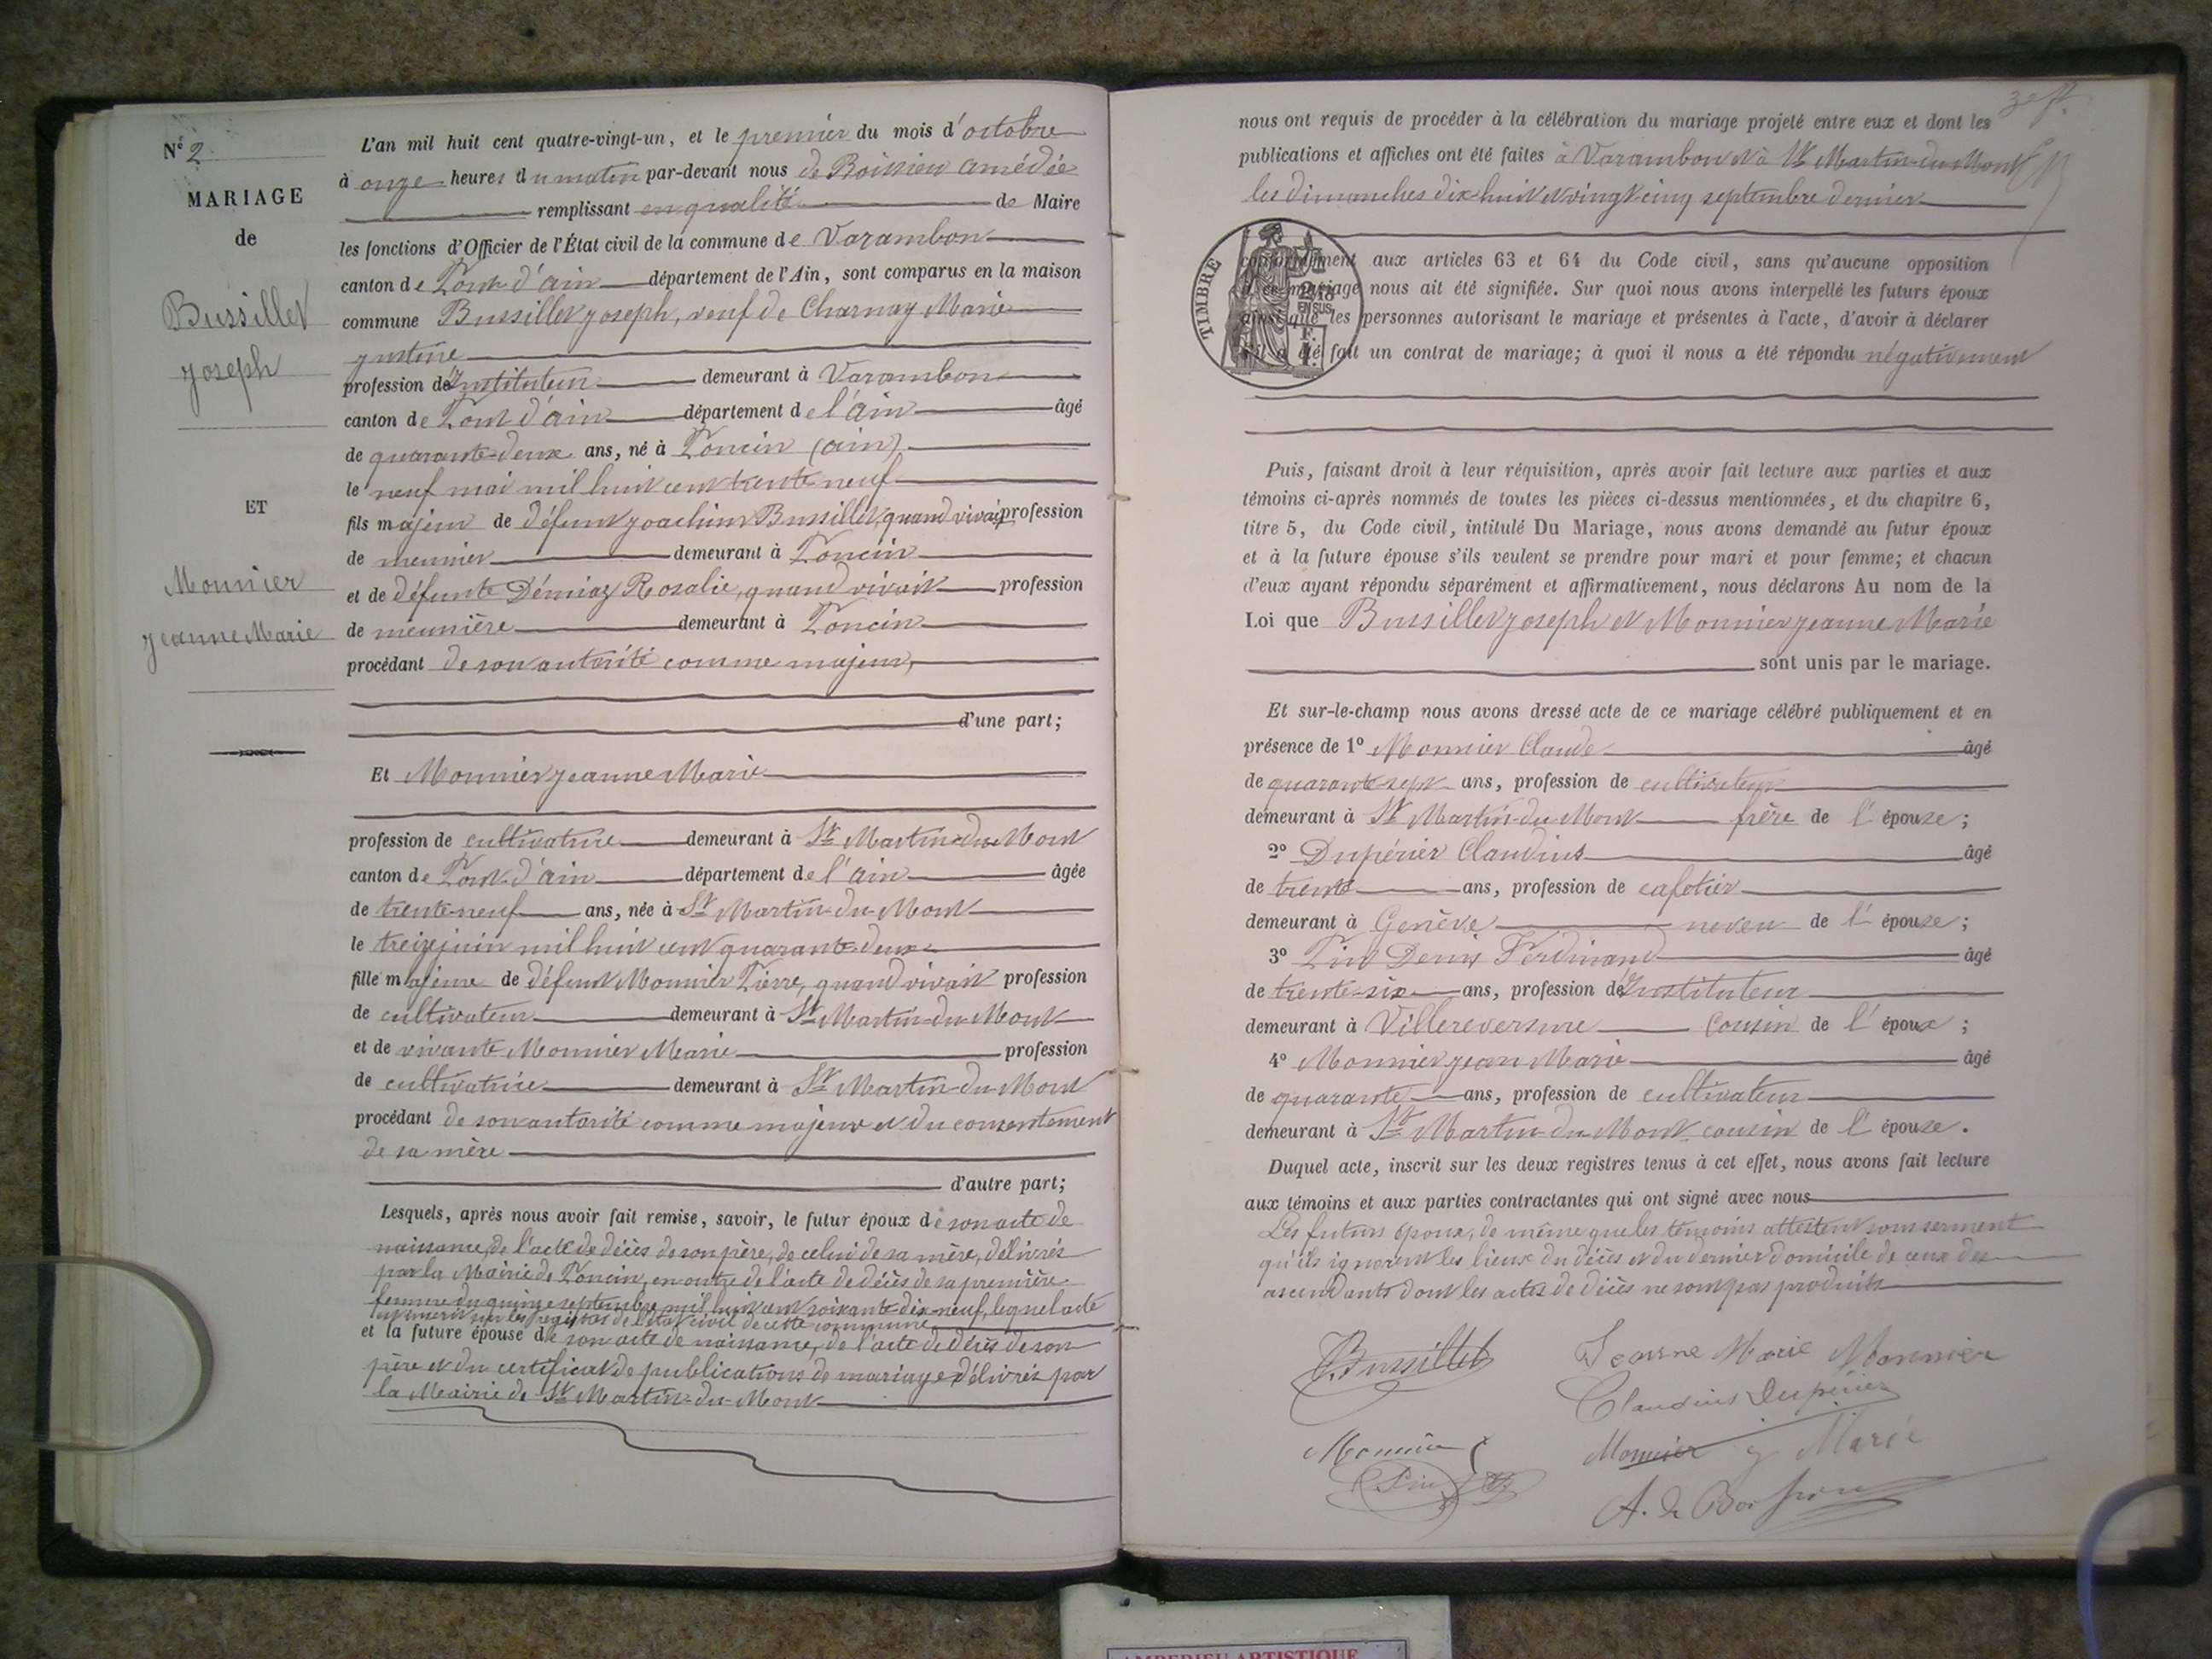 Nº 2
MARIAGE
de
Bussillet
Joseph
ET
Monnier
Jeanne Marie
L'an mil huit cent quatre-vingt-un, et le premier du mois d'octobre
à onze heures du matin par-devant nous de Boissieu Amédée
remplissant en qualité de Maire
les fonctions d'Officier de l'État civil de la commune de Varambon
canton de Pont d'ain département de l'Ain, sont comparus en la maison
commune Bussillet Joseph, veuf de Charnay Marie
Justine
profession de Instituteur demeurant à Varambon
canton de Pont d'ain département de l'ain âgé
de quarante-deux ans, né à Poncin (ain)
le neuf mai mil huit cent trente neuf
fils majeur de défunt Joachim Bussillet, quand vivait profession
de meunier demeurant à Poncin
et de défunte Démiaz Rosalie, quand vivait profession
de meunière demeurant à Poncin
procédant de son autorité comme majeur,
d'une part;
Et Monnier Jeanne Marie
profession de cultivatrice demeurant à St Martin-du-Mont
canton de Pont-d'ain département de l'ain âgée
de trente-neuf ans, née à St Martin-du-Mont
le treize juin mil huit cent quarante-deux
fille majeure de défunt Monnier Pierre, quand vivait profession
de cultivateur demeurant à St Martin-du-Mont
et de vivante Monnier Marie profession
de cultivatrice demeurant à St Martin-du-Mont
procédant de son autorité comme majeure et du consentement
de sa mère
d'autre part;
Lesquels, après nous avoir fait remise, savoir, le futur époux de son acte de
naissance, de l'acte de décès de son père, de celui de sa mère, délivrés
par la Mairie de Poncin, en outre de l'acte de décès de sa première
femme du quinze septembre mil huit cent soixante-dix-neuf, lequel acte
est inscrit sur les registres de l'état civil de cette commune
et la future épouse de son acte de naissance, de l'acte de décès de son
père et du certificat de publications de mariage délivrés par
la Mairie de St Martin-du-Mont
nous ont requis de procéder à la célébration du mariage projeté entre eux et dont les
publications et affiches ont été faites à Varambon et à St Martin-du-Mont
les dimanches dix-huit et vingt cinq septembre dernier
TIMBRE
EN SUS
conformément aux articles 63 et 64 du Code civil, sans qu'aucune opposition
à ce mariage nous ait été signifiée. Sur quoi nous avons interpellé les futurs époux
ainsi que les personnes autorisant le mariage et présentes à l'acte, d'avoir à déclarer
s'il a été fait un contrat de mariage; à quoi il nous a été répondu négativement
Puis, faisant droit à leur réquisition, après avoir fait lecture aux parties et aux
témoins ci-après nommés de toutes les pièces ci-dessus mentionnées, et du chapitre 6,
titre 5, du Code civil, intitulé Du Mariage, nous avons demandé au futur époux
et à la future épouse s'ils veulent se prendre pour mari et pour femme; et chacun
d'eux ayant répondu séparément et affirmativement, nous déclarons Au nom de la
Loi que Bussillet Joseph et Monnier Jeanne Marie
sont unis par le mariage.
Et sur-le-champ nous avons dressé acte de ce mariage célébré publiquement et en
présence de 1º Monnier Claude âgé
de quarante-sept ans, profession de cultivateur
demeurant à St Martin-du-Mont frère de l'épouse;
2º Dupérier Claudius âgé
de trente ans, profession de cafetier
demeurant à Genève neveu de l'épouse;
3º Pin Denis Ferdinand âgé
de trente-six ans, profession de Instituteur
demeurant à Villereversure Cousin de l'époux;
4º Monnier Jean Marie âgé
de quarante ans, profession de cultivateur
demeurant à St Martin-du-Mont cousin de l'épouse.
Duquel acte, inscrit sur les deux registres tenus à cet effet, nous avons fait lecture
aux témoins et aux parties contractantes qui ont signé avec nous
Les futurs époux, de même que les témoins attestent sous serment
qu'ils ignorent les lieux du décès et du dernier domicile de ceux des
ascendants dont les actes de décès ne sont pas produits
J. Bussillet
Jeanne Marie Monnier
Claudius Dupérier
Monnier C
Monnier J Marie
Pin
A. de Boissieu
AMBERIEU ARTISTIQUE